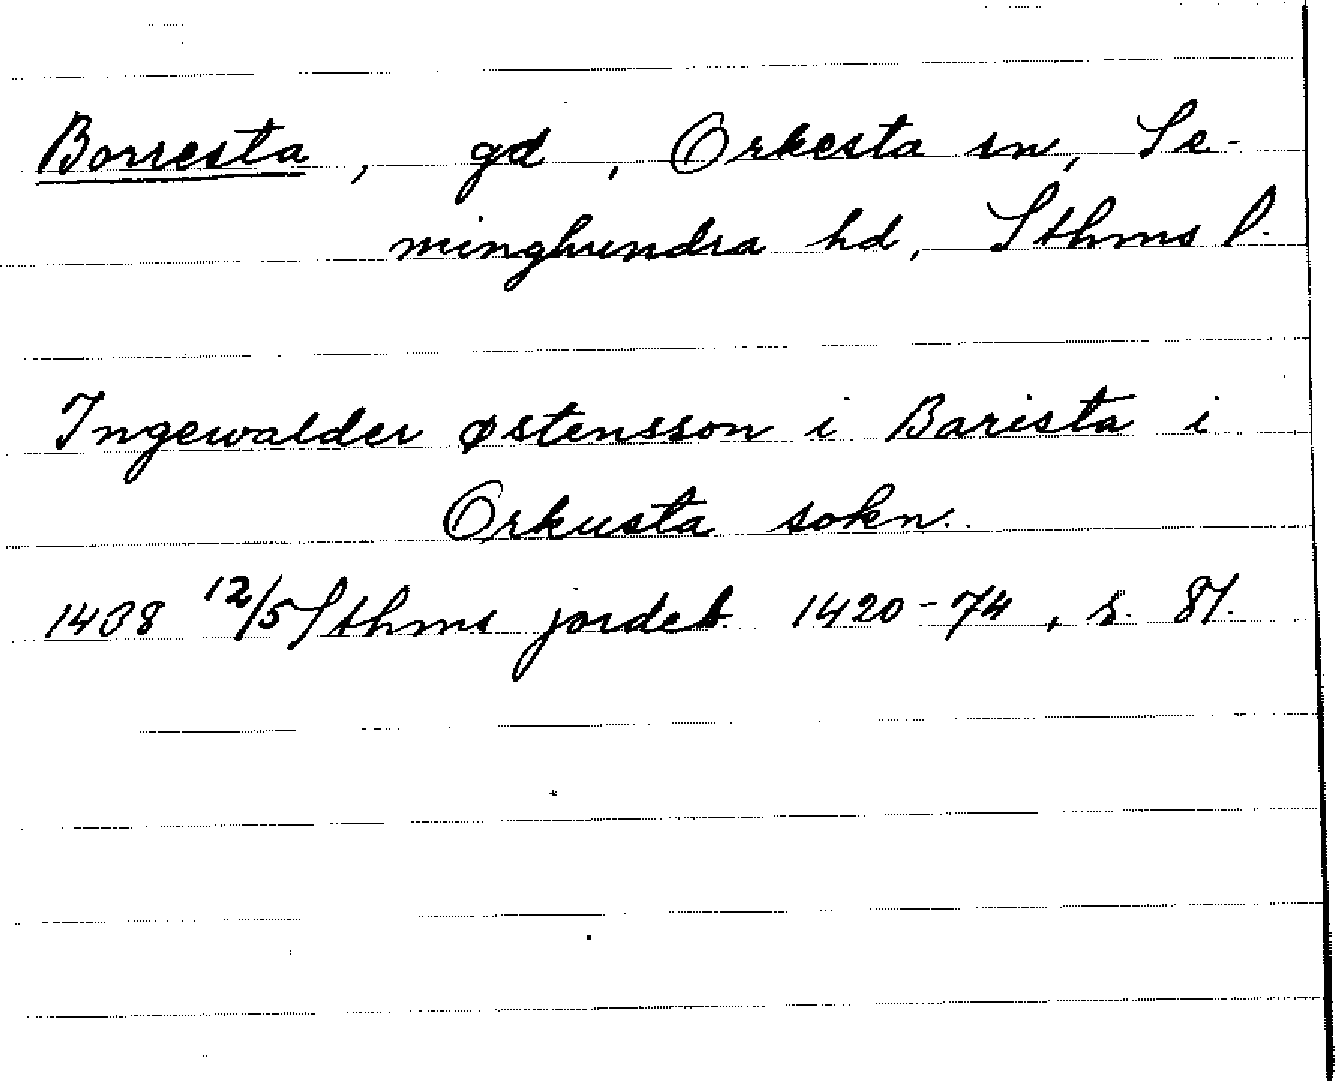 Borresta, gd, Orkesta sn, Se-
minghundra hd, Sthms l.
Ingewalder østensson i Barista i
Orkusta sokn.
1438 12/5 Sthms jordeb. 1420-74, s. 81.